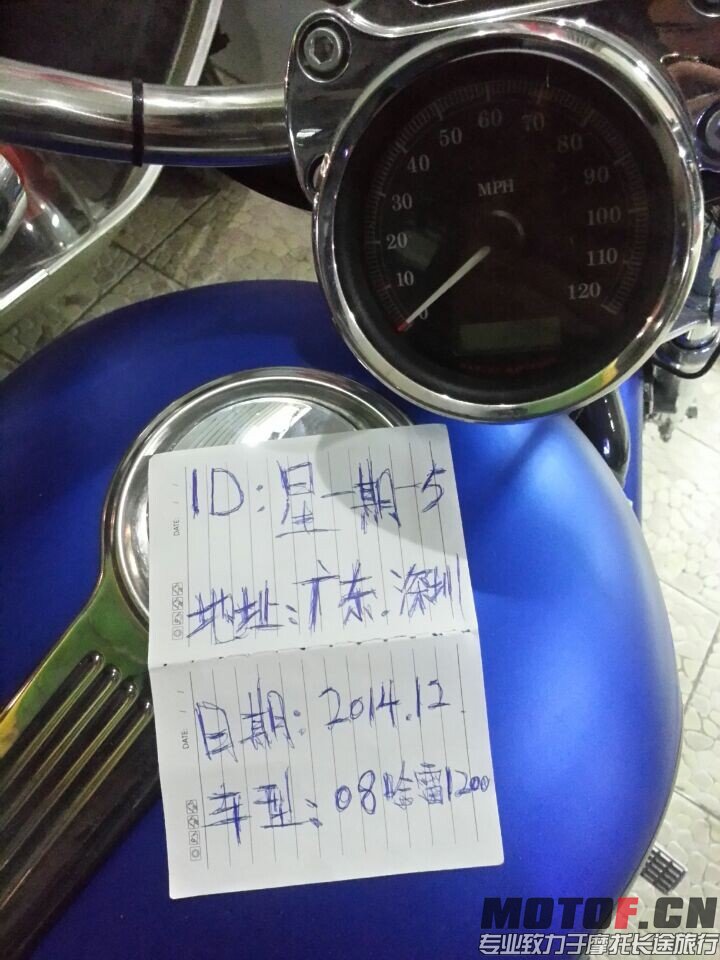 50 60 70
40 80
MPH
30 90
20 100
10 110
0 120
ID:星期5
地址:广东.深圳
日期:2014.12.
车型:08哈雷1200
DATE: / /
DATE: / /
MOTOF.CN
专业致力于摩托长途旅行